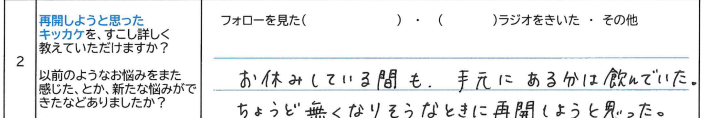 再開しようと思った
キッカケを、すこし詳しく
教えていただけますか？
フォローを見た(　　　　　　　)　・　(　　　　)ラジオをきいた　・　その他
2
以前のようなお悩みをまた
感じた、とか、新たな悩みがで
きたなどありましたか？
お休みしている間も、手元にあるかは飲んでいた。
ちょうど無くなりそうなときに再開しようと思った。